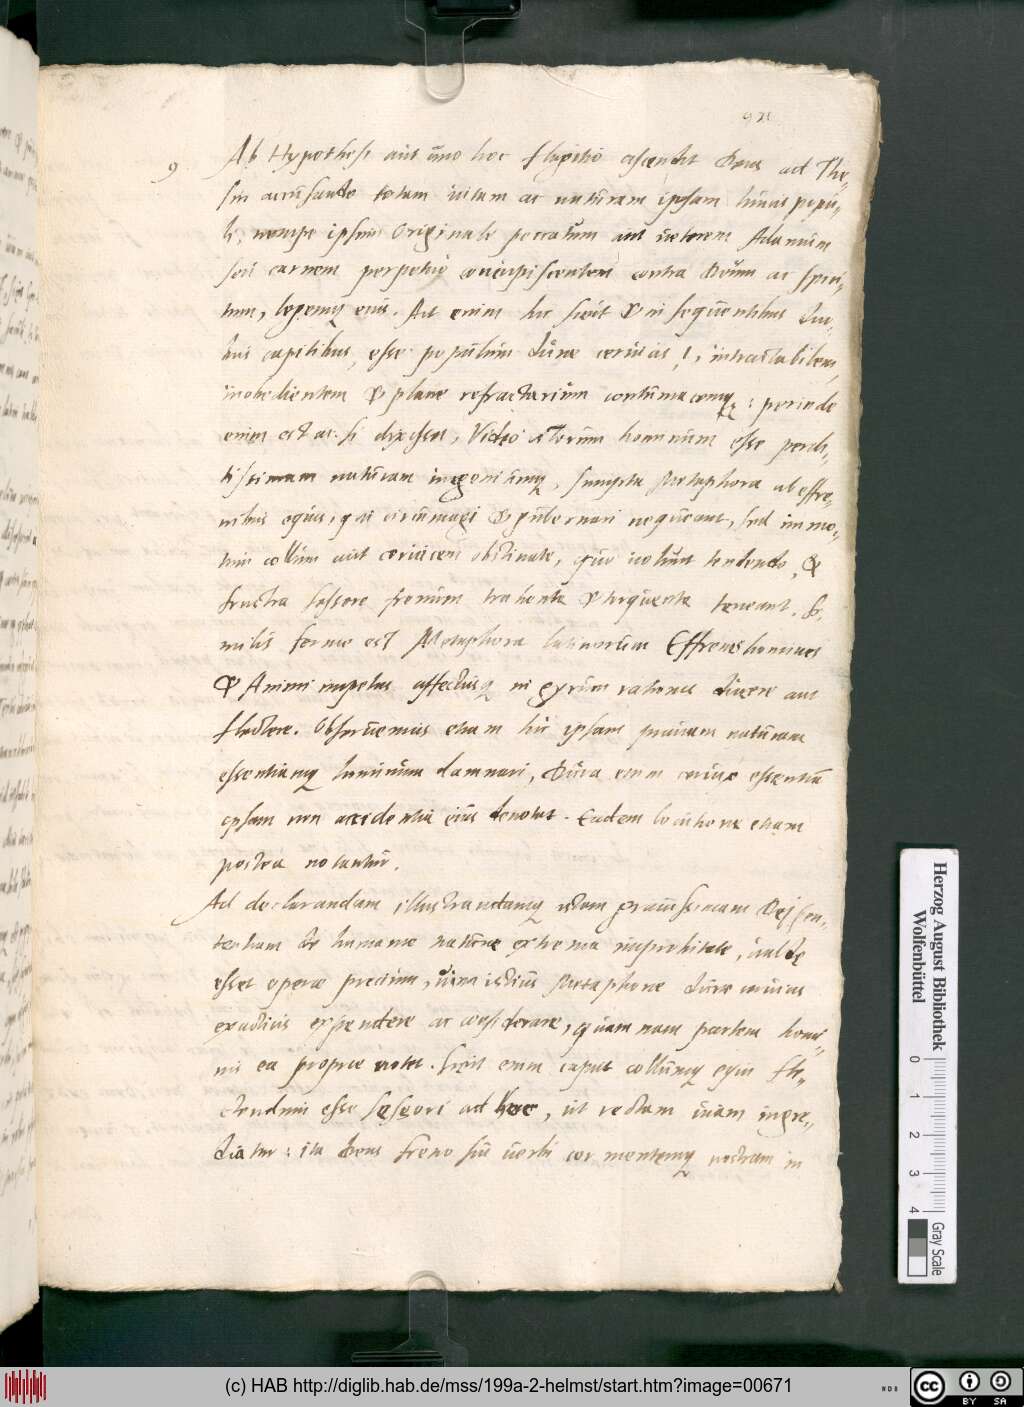 921
9 Ab Hypothesi aut uno hoc flagitio ascendit Deus ad The¬
sin accusando totam vitam ac naturam ipsam huius popu¬
li, nempe ipsum Originale peccatum aut veterem Adamum
seu carnem perpetuo concupiscentem contra Deum ac spiri¬
tum, legemq eius. Ait enim hic sicut & in sequentibus duo¬
bus capitibus, esse populum durae cervicis !, intractabilem,
inobedientem & plane refractarium contumacemq; perinde
enim est ac si dixisset, Video istorum hominum esse perdi¬
tissimam naturam ingeniumq, sumpta Metaphora ab effre¬
nibus equis, qui circumagi & gubernari nequeant, sed immo¬
tum collum aut cervicem obstinate, quo volunt tendendo, &
frustra sessore frenum trahente & torquente teneant. Si¬
milis ferme est Metaphora latinorum Effrenes homines
& Animi impetus affectusq in gyrum rationis ducere aut
flectere. Observemus etiam hic ipsam pravam naturam
essentiamq hominum damnari, Dura enim cervix essentiam
ipsam non accidentia eius denotat. Eadem locutione etiam
postea notantur.
Ad declarandam illustrandamq istam gravissimam Dei sen¬
tentiam de humanae naturae extrema improbitate, valde
esset operae precium, vim istius Metaphorae durae cervicis
exactius expendere ac considerare, quam nam partem homi¬
nis ea proprie notet. Sicut enim caput collumq equi fle¬
ctendum esse sessori ad hoc, ut rectam viam ingre¬
diatur: ita Deus freno sui verbi cor mentemq nostram in
Herzog August Bibliothek
Wolfenbüttel
0 1 2 3 4
Gray Scale
(c) HAB http://diglib.hab.de/mss/199a-2-helmst/start.htm?image=00671
cc BY SA